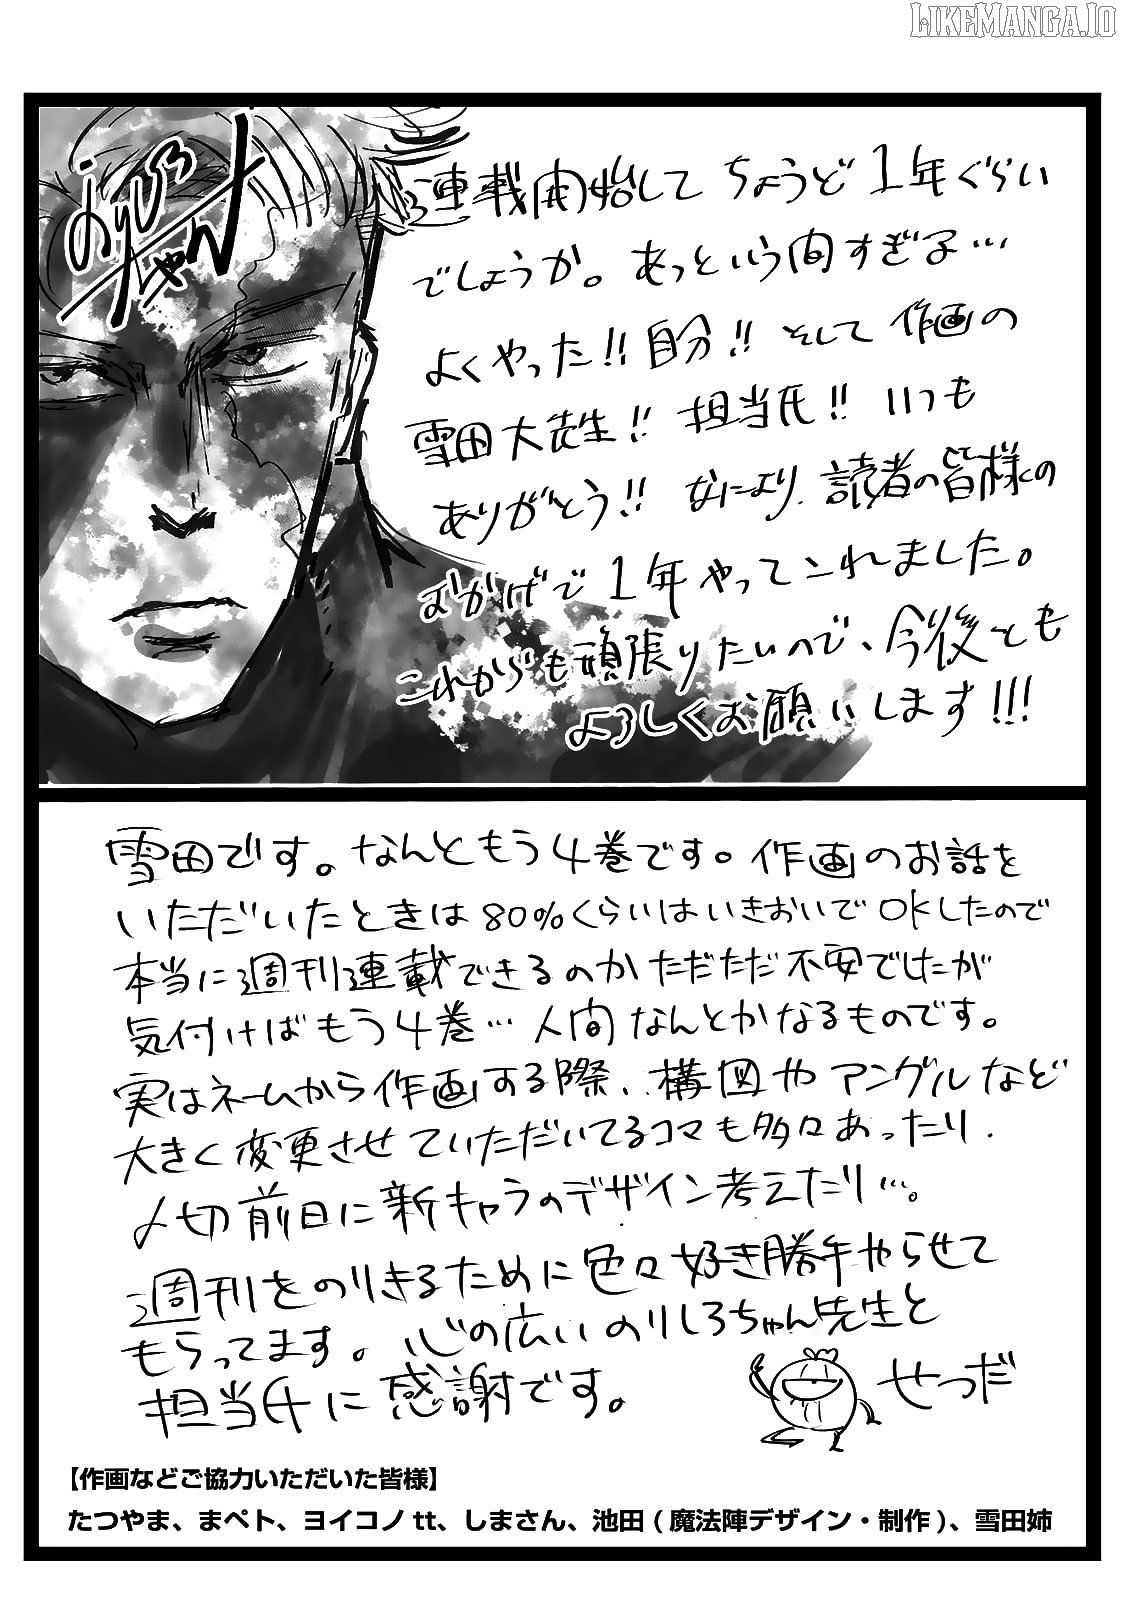 LIKEMANGA.IO
のりしろちゃん
連載開始してちょうど1年ぐらい
でしょうか。あっという間すぎる…
よくやった!!自分!!そして作画の
雪田大先生!!担当氏!!いつも
ありがとう!!なにより、読者の皆様の
おかげで1年やってこれました。
これからも頑張りたいので、今後とも
よろしくお願いします!!!
雪田です。なんともう4巻です。作画のお話を
いただいたときは80%くらいはいきおいでOKしたので
本当に週刊連載できるのかただただ不安でしたが
気付けばもう4巻…人間なんとかなるものです。
実はネームから作画する際、構図やアングルなど
大きく変更させていただいてるコマも多々あったり、
〆切前日に新キャラのデザイン考えたり…。
週刊をのりきるために色々好き勝手やらせて
もらってます。心の広いのりしろちゃん先生と
担当氏に感謝です。
せつだ
【作画などご協力いただいた皆様】
たつやま、まペト、ヨイコノtt、しまさん、池田(魔法陣デザイン・制作)、雪田姉